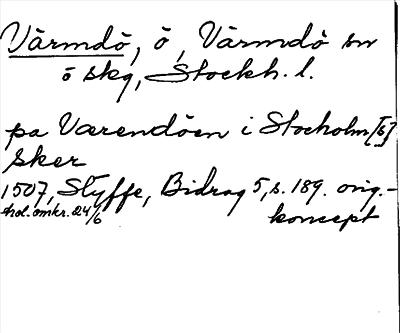 Värmdö, ö, Värmdö sn
ö skg, Stockh. l.
pa Værendöen i Stocholm[s]
sker
1507, Styffe, Bidrag 5, s. 189. orig.-
Sthol. omkr. 24/6 koncept